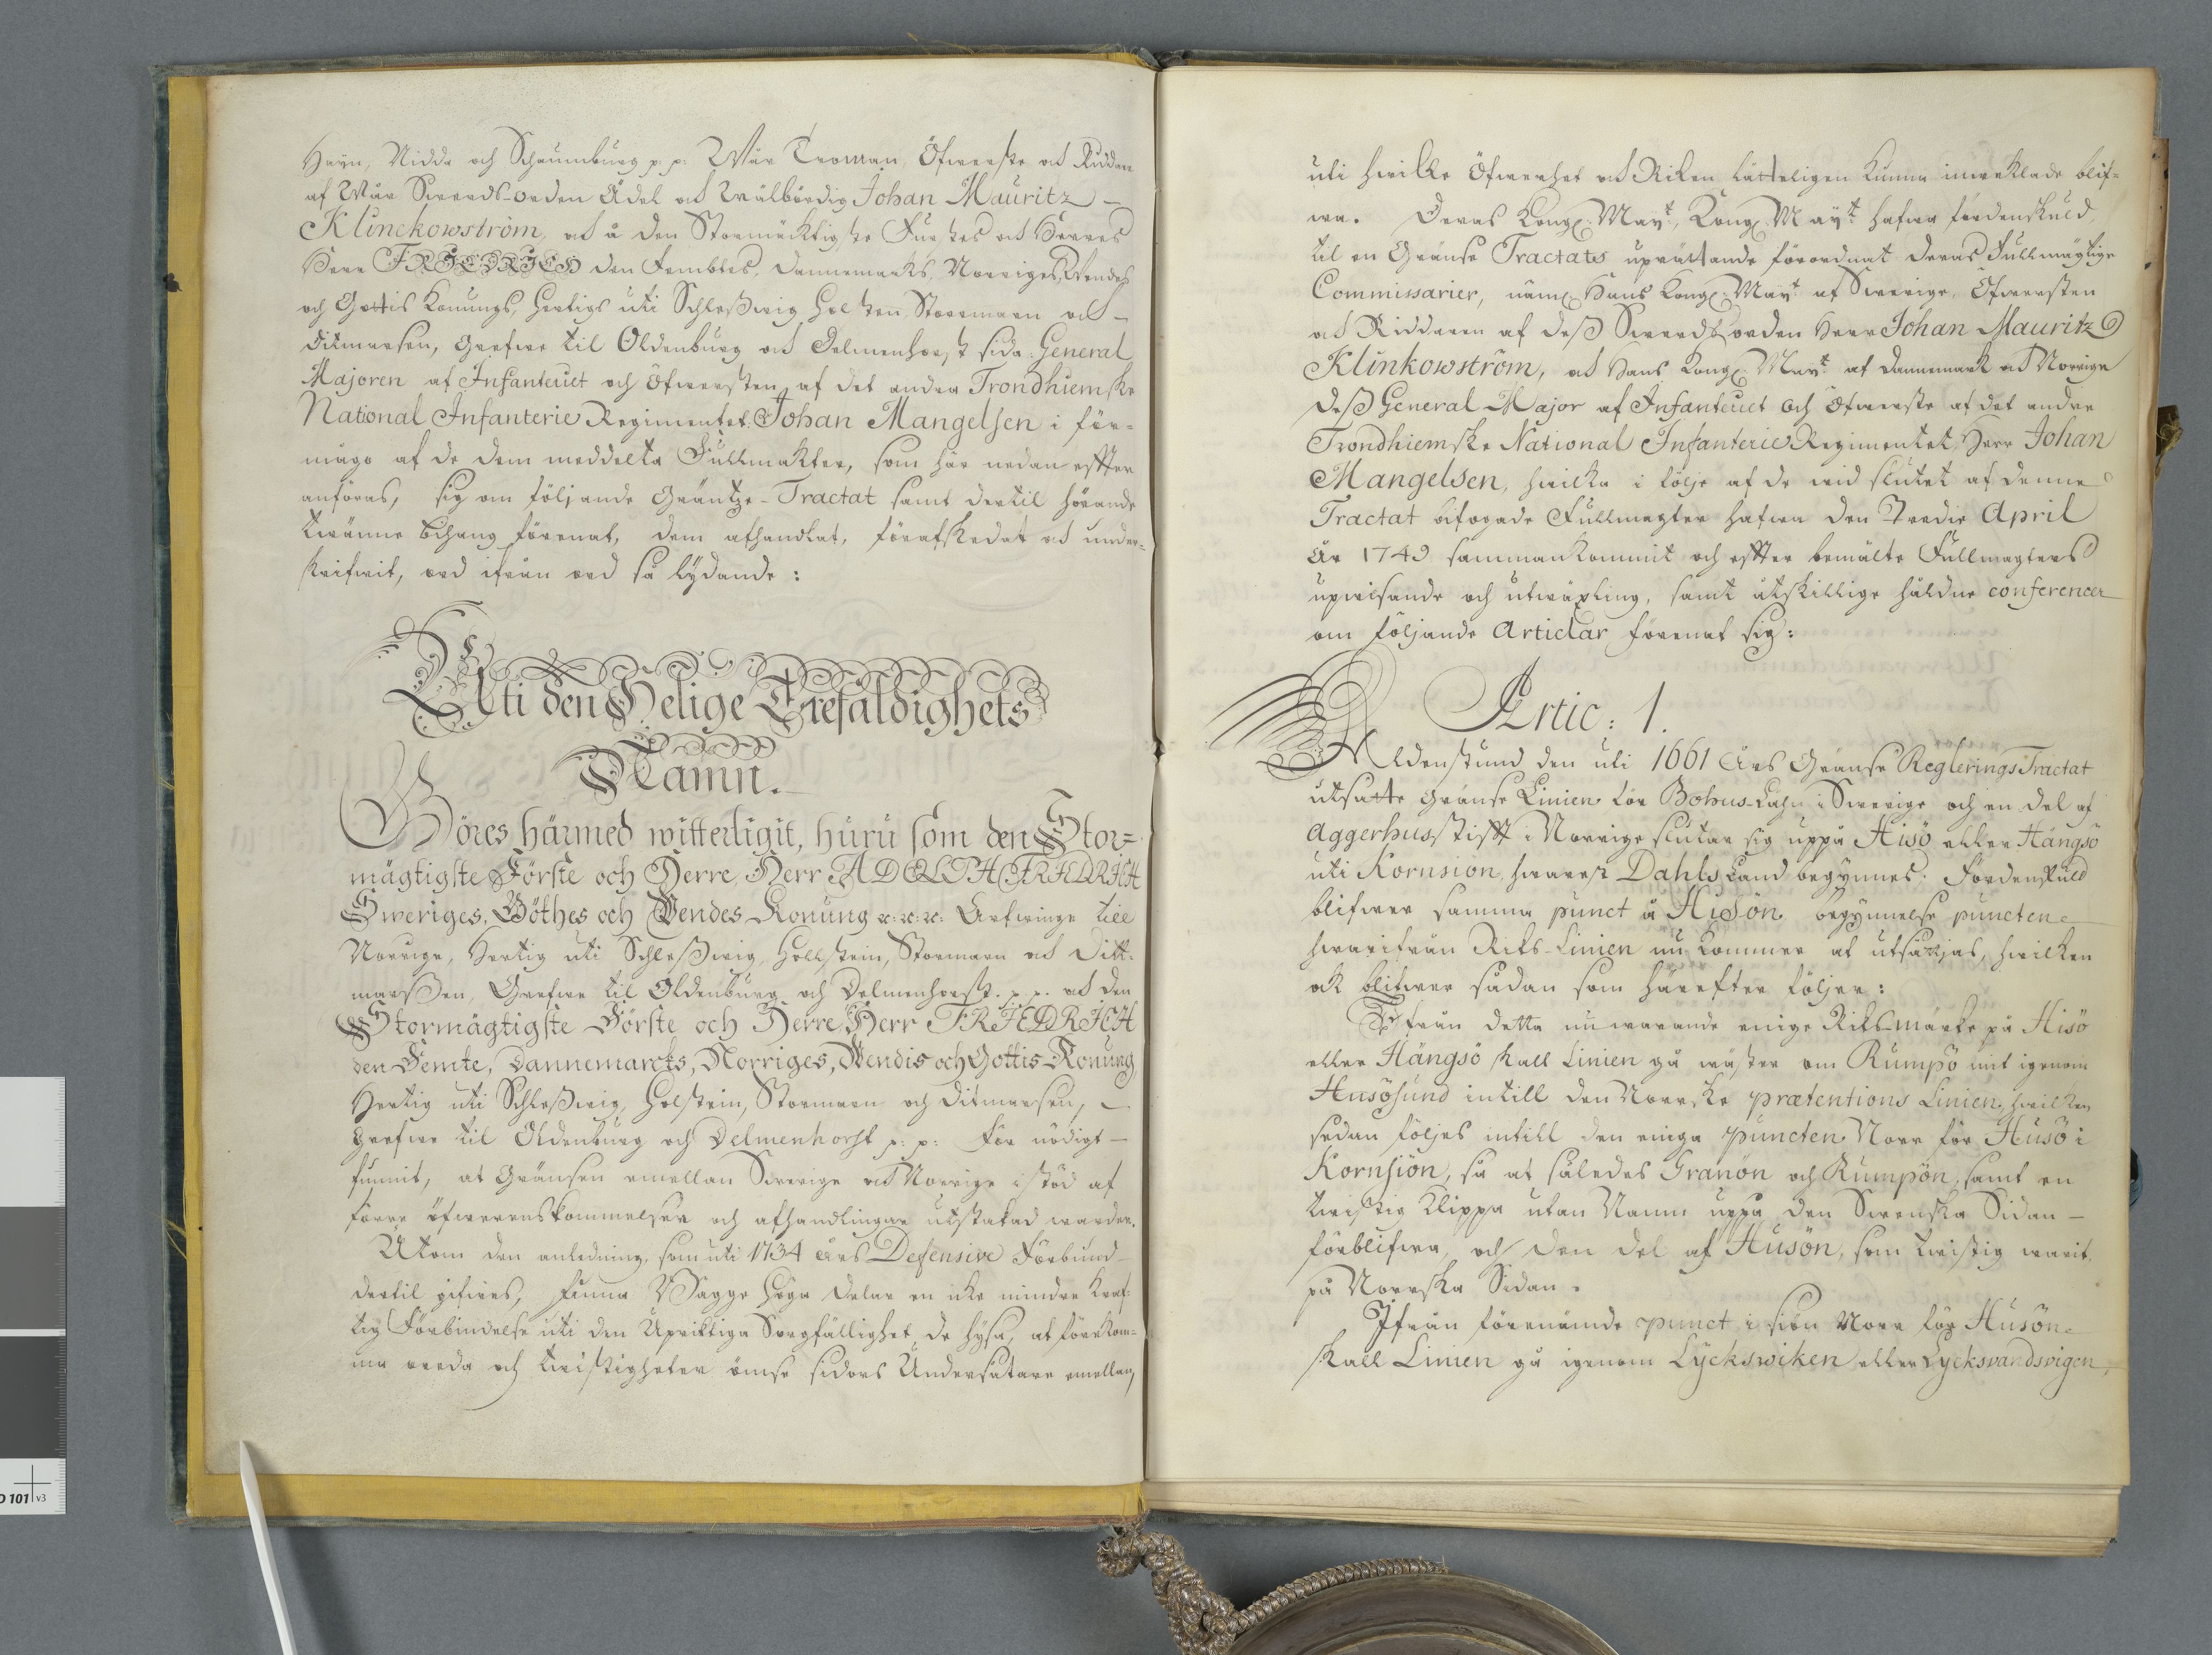 Hayn, Nidda och Schaumburg p. p. Wår Troman, Öfwerste och Riddare
af Wår Swerds-orden Ädel och Wälbördig Johan Mauritz
Klinckowström, och å den Stormäcktigste Furstes och Herres
Herr FRIEDRICH den Fembtes, Dannemarks, Norriges, Wendes
och Gottis Konungs, Hertigs uti Schleßwig Holsten Stormarn och
Ditmarsen, Grefwe til Oldenburg och Delmenhorst sida General
Majoren af Infanteriet och Öfwersten af det andra Trondhiemske
National Infanterie Regimentet Johan Mangelsen i för-
mågo af de dem meddelta Fullmakter, som här nedan effter
anföras, sig om följande Gräntze-Tractat samt dertil hörande
twänne Bihang förenat, dem afhandlat, förafskedat och under-
skrifwit, ord ifrån ord så lydande:
Uti den Helige Trefaldighets
Namn.
Göres härmed witterligit, huru som den Stor=
mägtigste Förste och Herre, Herr ADOLPH FRIEDRICH
Sweriges, Göthes och Wendes Konung x: x: x: Arfwinge till
Norrige, Hertig uti Schleßwig, Hollstein, Stormarn och Ditt-
marßen, Grefwe til Oldenburg och Delmenhorst. p. p. och den
Stormägtigste Förste och Herre, Herr FRIEDRICH
den Femte, Dannemarcks, Norriges, Wendis och Gottis Konung,
Hertig uti Schleßwig, Holstein, Stormarn och Ditmarsen,
Grefwe til Oldenburg och Delmenhorst p: p: För nödigt
funnit, at Gränsen emellan Swerige och Norrige i stöd af
förre öfwerenskommelser och afhandlingar utstakad warder.
Utom den anledning, som uti 1734 Års Defensive Förbund
dertil gifwes, finna Bägge höga delar en icke mindre kraf-
tig Förbindelse uti den Upriktiga Sorgfällighet de hysa, at förekom-
ma oreda och twistigheter ömse sidors Undersåtare emellan,
uti hwilke Öfwerhet och Riken lätteligen kunna inweklade blif-
wa. Deras Kongl: Mayt, Kongl: Mayt: hafwa fördenskuld,
til en Gränse Tractats uprättande förordnat deras Fullmäytige
Commissarier, näml: Hans Kongl: Mayt af Swerige, Öfwersten
och Riddaren af deß Swerdsorden Herr Johan Mauritz
Klinkowström, och Hans Kongl: Mayt: af Dannemark och Norrige
deß General Major af Infanteriet och Öfwerste af det andre
Trondhiemske National Infanterie Regimentet, Herr Johan
Mangelsen, hwilka i följe af de wid slutet af denne
Tractat bifogade Fullmagter hafwa den Tredie April
År 1749 sammankommit och effter bemälte Fullmagters
upwisande och utwäxling, samt åtskillige håldne conferencer
om följande Articlar förenat sig:
Artic: 1.
Aldenstund den uti 1661 Års Gränse Reglerings Tractat
utsatte Gränse Linien för Bohus-Lähn i Swerige och en del af
Aggerhus stifft i Norrige slutar sig uppå Hisö eller Hängsö
uti Kornsion, hwarest Dahls Land begynnes. Fördenskuld
blifwer samma punct å Hisön begynnelse puncten
hwarifrån Riks-Linien nu kommer at utsättjas, hwilken
ock blifwer sådan som härefter följer:
Ifrån detta nuwarande enige Riksmärke på Hisö
eller Hängsö skall Linien gå wäster om Rumpö mit igenom
Husösund intill den Norrske prætentions Linien, hwilken
sedan följes intill den eniga puncten Norr för Husö i
Kornsiön, så at således Granön och Rumpön, samt en
twistig Klippa utan Namn uppå den Swenska Sidan
förblifwa, och den del af Husön, som twistig warit,
på Norrska Sidan.
Ifrån förenämde punct i siön Norr för Husön
skall Linien gå igenom Lyckswiken eller Lycksvandsvigen,